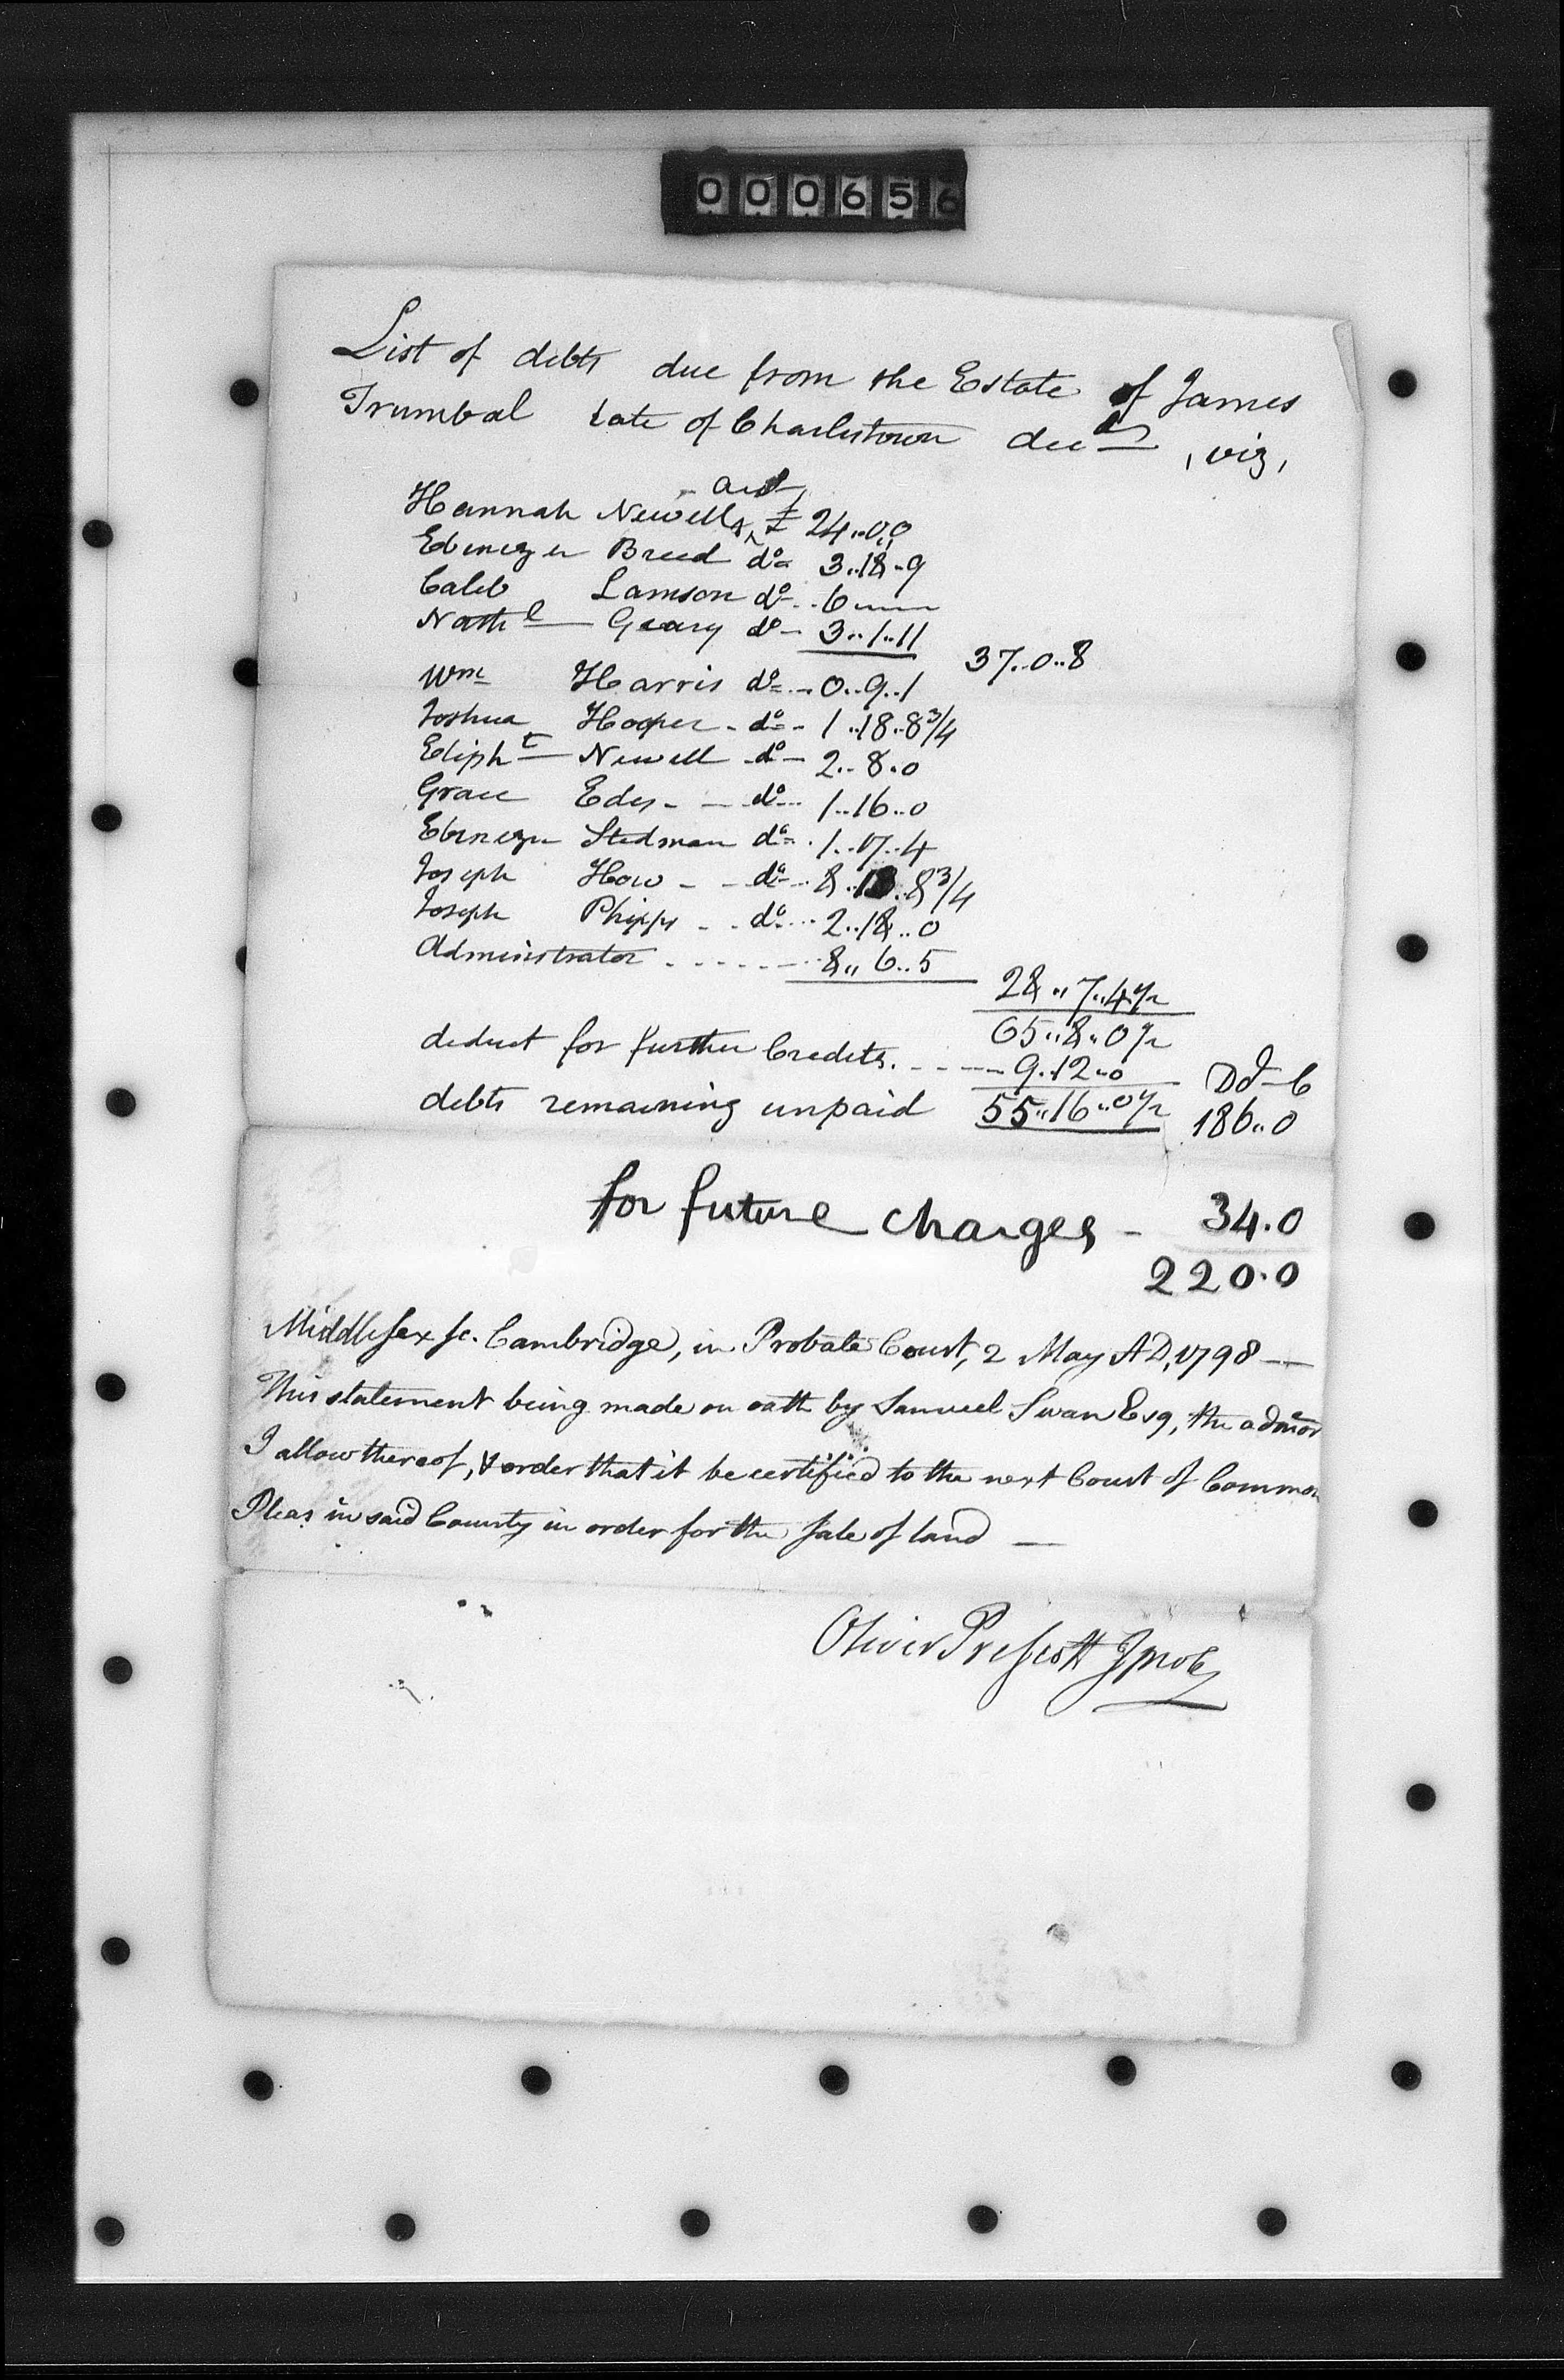 000656
List of debts due from the Estate of James
Trumbal late of Charlestown decd, viz,
Hannah Newells acct £ 24..0,,0
Ebenezer Breed do 3..18..9
Caleb Lamson do .. 6
Nathl Geary do - 3..1..11
37..0..8
Wm Harris do .. 0..9..1
Joshua Hooper - do - 1..18..8 3/4
Elipht Newell do - 2..8..0
Grace Edes - - do .. 1..16..0
Ebenezer Stedman do . 1..17..4
Joseph How - - do .. 8..13..8 3/4
Joseph Phipps - - do ... 2..18..0
Administrator . . . . . - .. 8,,6..5
28,,7..4 1/2
65..8..0 1/2
deduct for further Credits. - - - - 9..12..0
Dd - C
debts remaining unpaid 55,,16..0 1/2 186..0
for future charges - 34.0
220.0
Middlesex sc. Cambridge, in Probate Court, 2 May AD, 1798 —
This statement being made on oath by Samuel Swan Esq, the admor
I allow thereof, & order that it be certified to the next Court of Common
Pleas in said County in order for the sale of land —
Oliver Prescott JProb